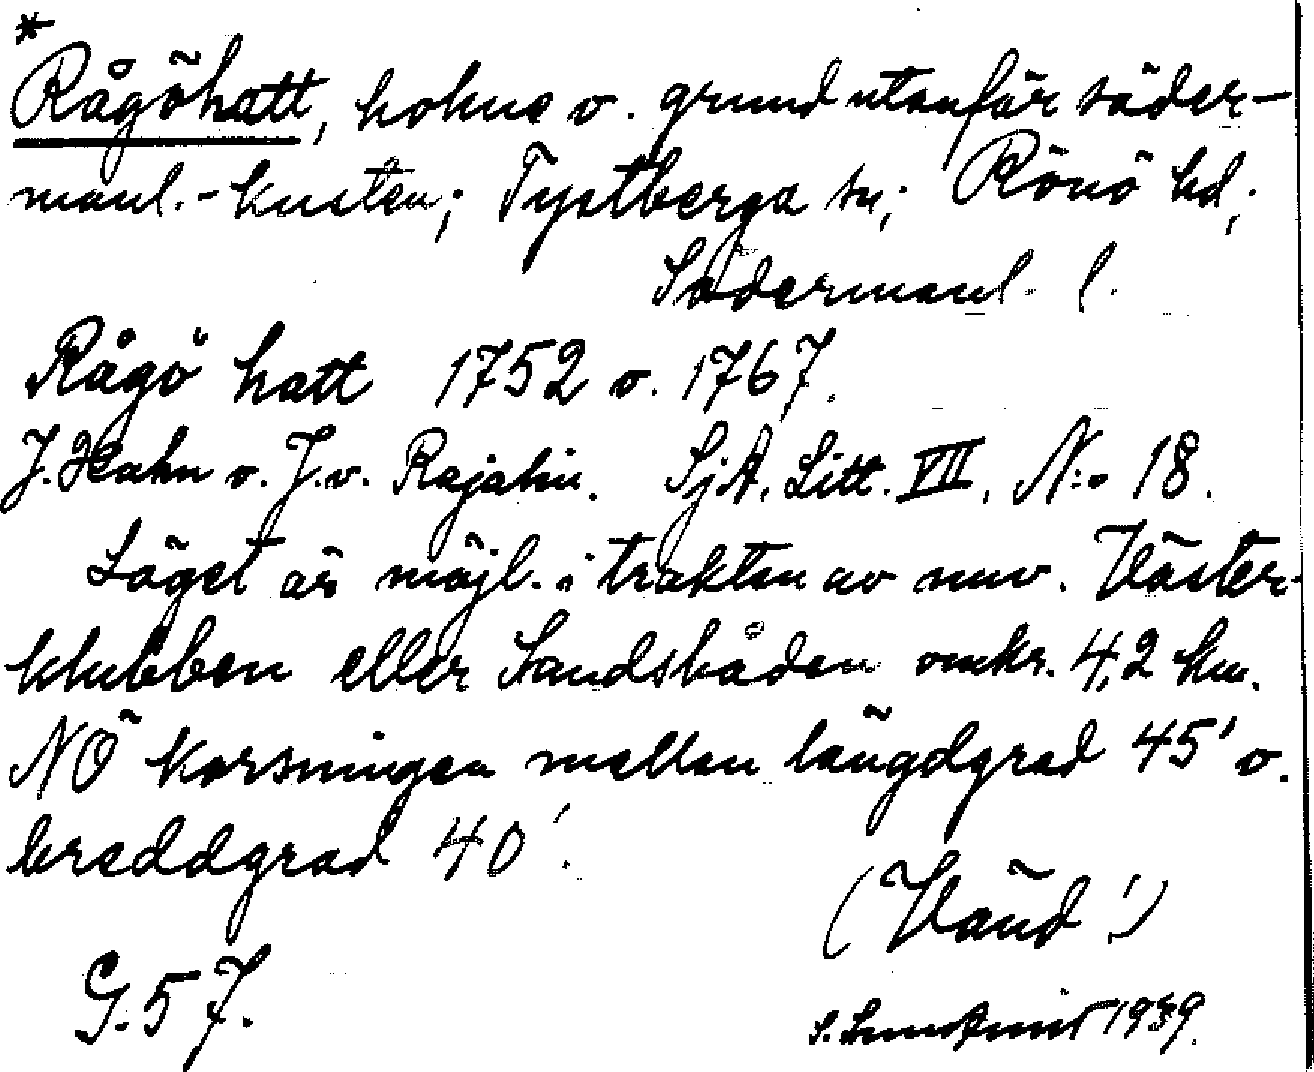 *
Rågöhatt, holme o. grund utanför söder-
manl.-kusten; Tystberga sn; Rönö hd;
Södermanl. l.
Rågö hatt 1752 o. 1767.
J. Hahn o. J. v. Rajalin. SjA. Litt. VII, N:o 18.
Läget är möjl. i trakten av nuv. Väster-
klubben eller Sandsbåden omkr. 4,2 km.
NÖ korsningen mellan längdgrad 45' o.
breddgrad 40'.
(Vänd!)
G. 57.
S. 1939.